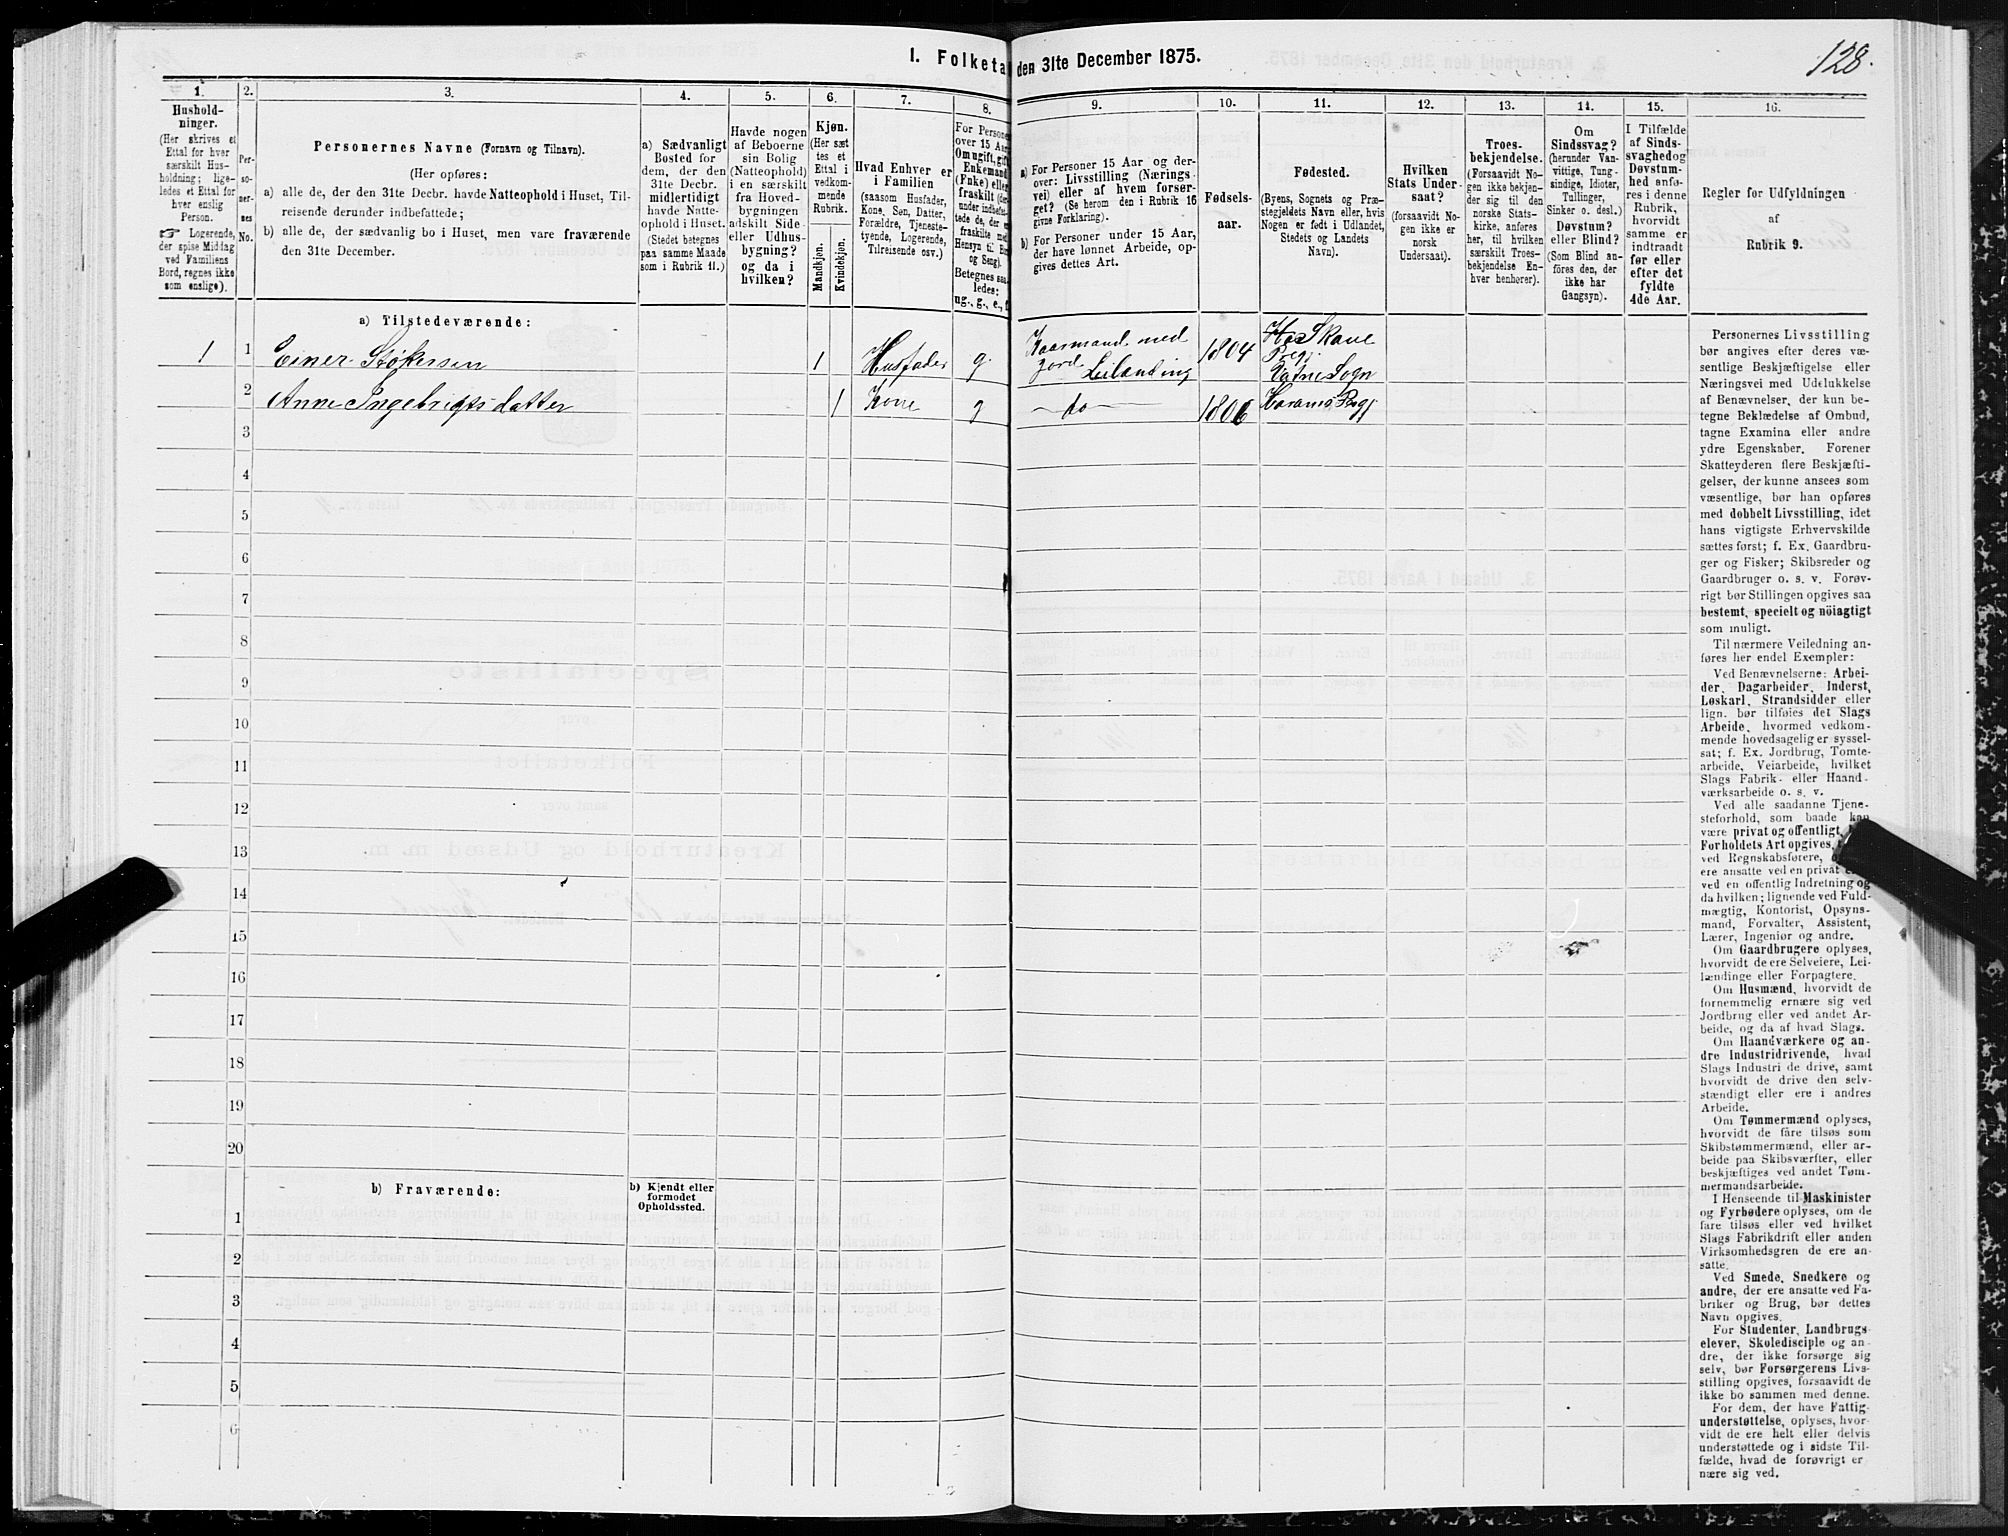 128.
I. Folketal
den 31te December 1875.
1.
2.
3.
4.
5.
6.
7.
8.
9.
10.
11.
12.
13.
14.
15.
16.
Hushold-
ninger.
(Her skrives et
Ettal for hver
særskilt Hus-
holdning; lige-
ledes et Ettal for
hver enslig
Person.
☞ Logerende,
der spise Middag
ved Familiens
Bord, regnes ikke
som enslige).
Per-
so-
ner-
nes
No.
Personernes Navne (Fornavn og Tilnavn).
(Her opføres:
a) alle de, der den 31te Decbr. havde Natteophold i Huset, Til-
reisende derunder indbefattede;
b) alle de, der sædvanlig bo i Huset, men vare fraværende
den 31te December.
a) Sædvanligt
Bosted for
dem, der den
31te Decbr.
midlertidigt
havde Natte-
ophold i Huset.
(Stedet betegnes
paa samme Maade
som i Rubrik 11.)
Havde nogen
af Beboerne
sin Bolig
(Natteophold)
i en særskilt
fra Hoved-
bygningen
adskilt Side-
eller Udhus-
bygning?
og da i
hvilken?
Kjøn.
(Her sæt
tes et
Ettal i
vedkom-
mende
Rubrik.
Mandkjøn.
Kvindekjøn.
Hvad Enhver er
i Familien
(saasom Husfader,
Kone, Søn, Datter,
Forældre, Tjeneste-
tyende, Logerende,
Tilreisende osv.)
For Persone
over 15 Aar
Om ugift, gift
Enkemand
(Enke) elle
fraskilt (der-
under indbefat-
tede de, der er
fraskilte med
Hensyn til Bor
og Seng).
Betegnes saa
ledes:
ug., g., e., f
a) For Personer 15 Aar og der-
over: Livsstilling (Nærings-
vei) eller af hvem forsør-
get? (Se herom den i Rubrik 16
givne Forklaring).
b) For Personer under 15 Aar,
der have lønnet Arbeide, op-
gives dettes Art.
Fødsels-
aar.
Fødested.
(Byens, Sognets og Præ-
stegjeldets Navn eller, hvis
Nogen er født i Udlandet,
Stedets og Landets
Navn).
Hvilken
Stats Under-
saat?
(forsaavidt No-
gen ikke er
norsk
Undersaat).
Troes-
bekjendelse.
(Forsaavidt No-
gen ikke bekjen-
der sig til den
norske Stats-
kirke, anføres
her, til hvilken
særskilt Troes-
bekjendelse En-
hver henhører).
Om
Sindssvag?
(herunder Van-
vittige, Tung-
sindige, Idioter,
Tullinger,
Sinker o. desl.)
Døvstum?
eller Blind?
(Som Blind an-
føres den, der
ikke har
Gangsyn).
I Tilfælde
af Sinds-
svaghed og
Døvstum-
hed anfø-
res i denne
Rubrik,
hvorvidt
samme er
indtraadt
før eller
efter det
fyldte
4de Aar.
Regler for Udfyldningen
af
Rubrik 9.
a) Tilstedeværende:
1 1 Einer Støkersen 1 Husfader g. Kaarmand med Jord Leilænding 1804 Skaue Pregj.
2 Anne Ingebrigtsdatter 1 Kone g —do— 1806 Vatne Sogn Harams Prgj
3
4
5
6
7
8
9
10
11
12
13
14
15
16
17
18
19
20
b) Fraværende:
b) Kjendt eller
formodet
Opholdssted.
1
2
3
4
5
6
Personernes Livsstilling
bør angives efter deres væ-
sentlige Beskjæftigelse eller
Næringsvei med Udelukkelse
af Benævnelser, der kun be-
tegne Beklædelse af Ombud,
tagne Examina eller andre
ydre Egenskaber. Forener
Skatteyderen flere Beskjæfti-
gelser, der kunne ansees som
væsentlige, bør han opføres
med dobbelt Livsstilling, idet
hans vigtigste Erhvervskilde
sættes først; f. Ex. Gaardbru-
ger og Fisker; Skibsreder og
Gaardbruger o. s. v. Forøv-
rigt bør Stillingen opgives saa
bestemt, specielt og nöiagtigt
som muligt.
Til nærmere Veiledning an-
føres her endel Exempler:
Ved Benævnelserne: Arbei-
der, Dagarbeider, Inderst,
Løskarl, Strandsidder eller
lign. bør tilføies det Slags
Arbeide, hvormed vedkom-
mende hovedsagelig er syssel-
sat; f. Ex. Jordbrug, Tomte-
arbeide, Veiarbeide, hvilket
Slags Fabrik- eller Haand-
værksarbeide o. s. v.
Ved alle saadanne Tjene-
steforhold, som baade kan
være privat og offentligt,
Forholdets Art opgives,
ved Regnskabsførere,
ere ansatte ved en privat
ved en offentlig Indretning og
da hvilken; lignende ved Fuld-
mægtig, Kontorist, Opsyns-
mand, Forvalter, Assistent,
Lærer, Ingeniør og andre.
Om Gaardbrugere oplyses,
hvorvidt de ere Selveiere, Lei-
lændinge eller Forpagtere.
Om Husmænd, hvorvidt de
fornemmelig ernære sig ved
Jordbrug eller ved andet Ar-
beide, og da af hvad Slags.
Om Haandværkere og an-
dre Industridrivende, hvad
Slags Industri de drive, samt
hvorvidt de drive den selv-
stændigt eller ere i andres
Arbeide.
Om Tømmermænd oplyses,
hvorvidt de fare tilsøs som
Skibstømmermænd, eller ar-
beide paa Skibsværfter, eller
beskjæftiges ved andet Tøm-
mermandsarbeide.
I Henseende til Maskinister
og Fyrbødere oplyses, om de
fare tilsøs eller ved hvilket
Slags Fabrikdrift eller anden
Virksomhedsgren de ere an-
satte.
Ved Smede, Snedkere og
andre, der ere ansatte ved Fa-
briker og Brug, bør dettes
Navn opgives.
For Studenter, Landbrugs-
elever, Skoledisciple og an-
dre, der ikke forsørge sig
selv, bør Forsørgerens Livs-
stilling opgives, forsaavidt de
ikke bo sammen med denne.
For dem, der have Fattig-
understøttelse, oplyses, hvor-
vidt de ere helt eller delvis
understøttede og i sidste Til-
fælde, hvad de forøvrigt er
nære sig ved.